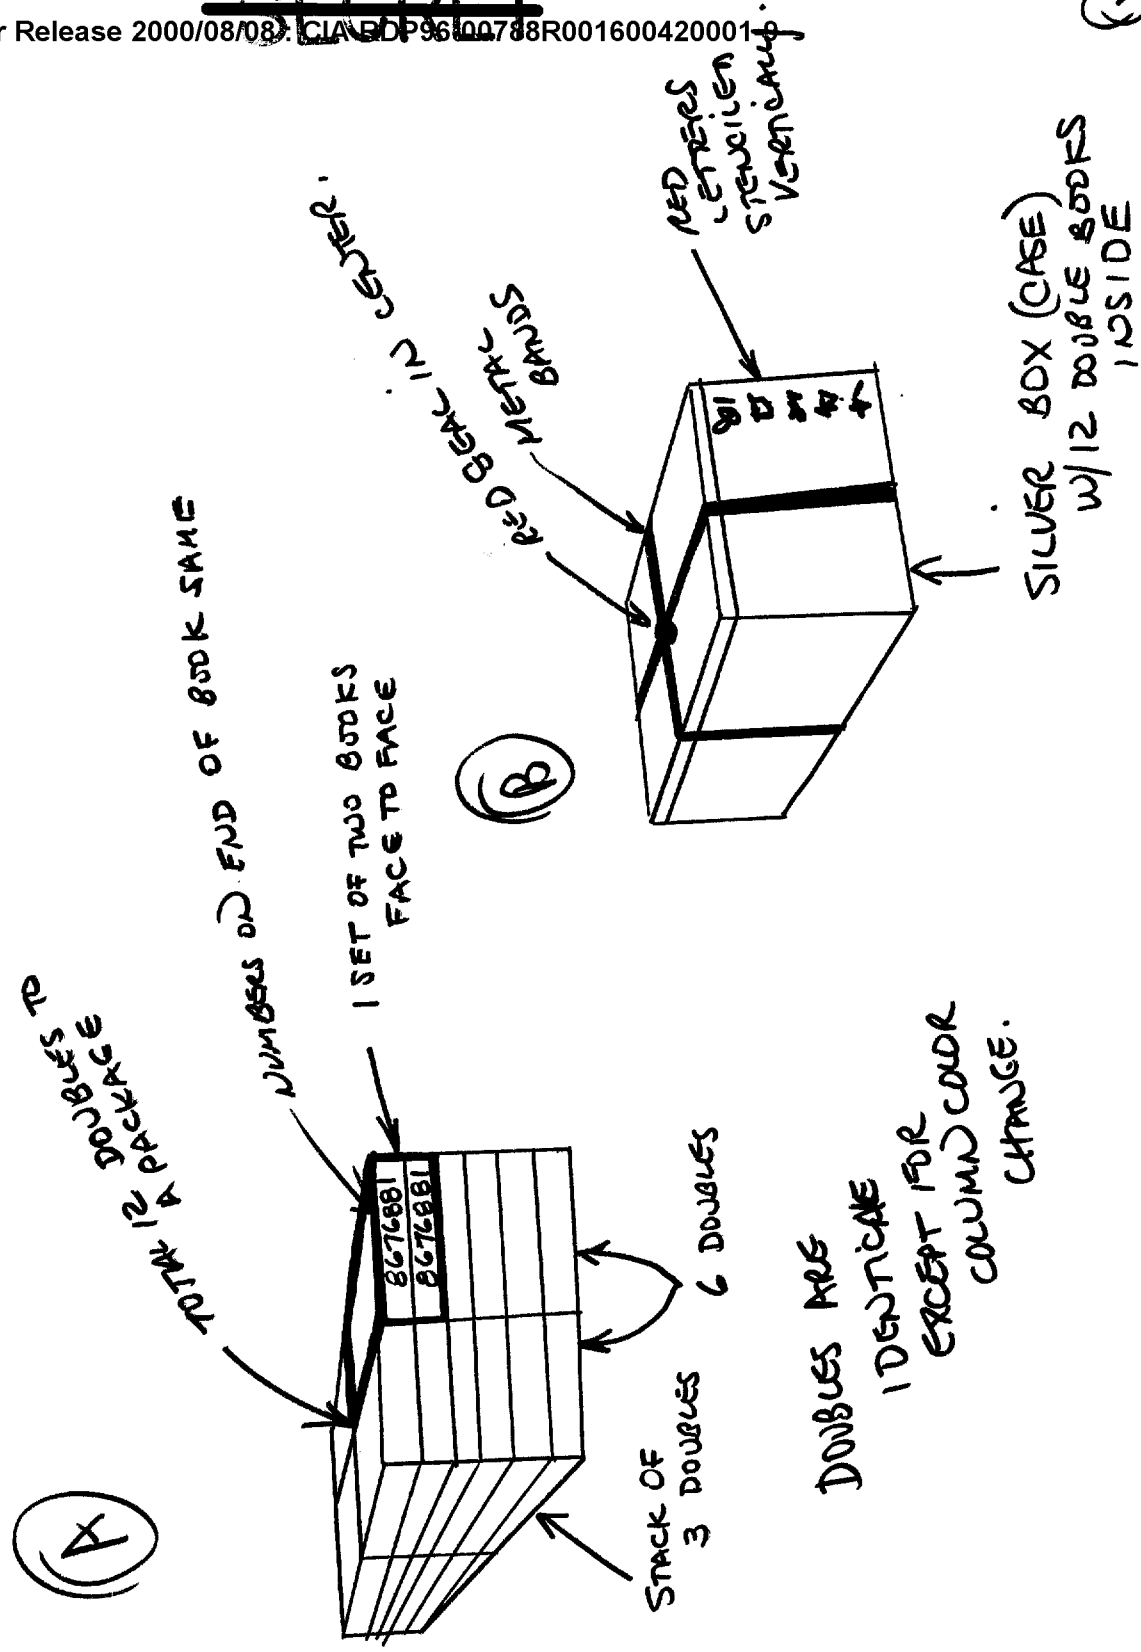 r Release 2000/08/08 : CIA-RDP96-00788R001600420001-9
SECRET
A
TOTAL 12 DOUBLES TO
A PACKAGE
NUMBERS ON END OF BOOK SAME
1 SET OF TWO BOOKS
FACE TO FACE
8676881
8676881
STACK OF
3 DOUBLES
6 DOUBLES
DOUBLES ARE
IDENTICAL
EXCEPT FOR
COLUMN COLOR
CHANGE.
B
RED SEAL IN CENTER.
METAL
BANDS
RED
LETTERS
STENCILED
VERTICALLY.
SILVER BOX (CASE)
W/12 DOUBLE BOOKS
INSIDE